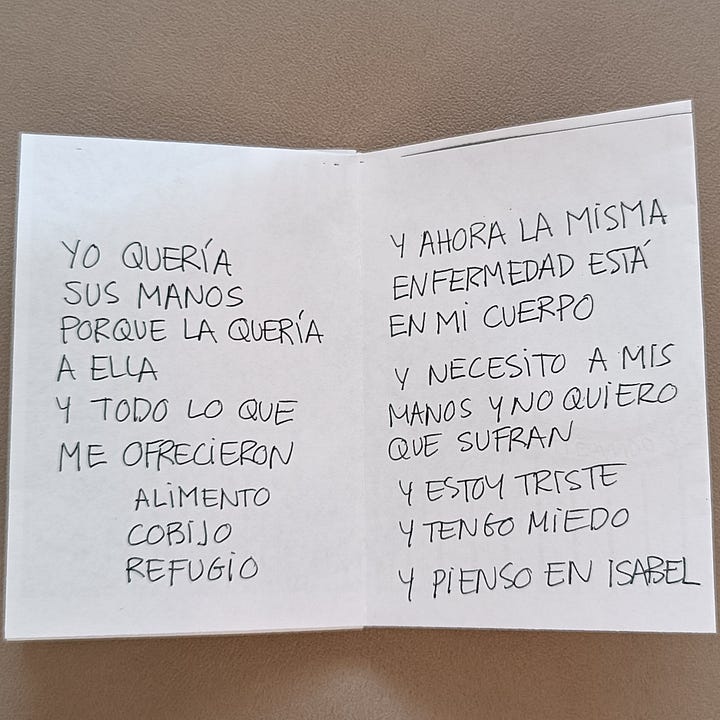 YO QUERÍA
SUS MANOS
PORQUE LA QUERÍA
A ELLA
Y TODO LO QUE
ME OFRECIERON
ALIMENTO
COBIJO
REFUGIO
Y AHORA LA MISMA
ENFERMEDAD ESTÁ
EN MI CUERPO
Y NECESITO A MIS
MANOS Y NO QUIERO
QUE SUFRAN
Y ESTOY TRISTE
Y TENGO MIEDO
Y PIENSO EN ISABEL